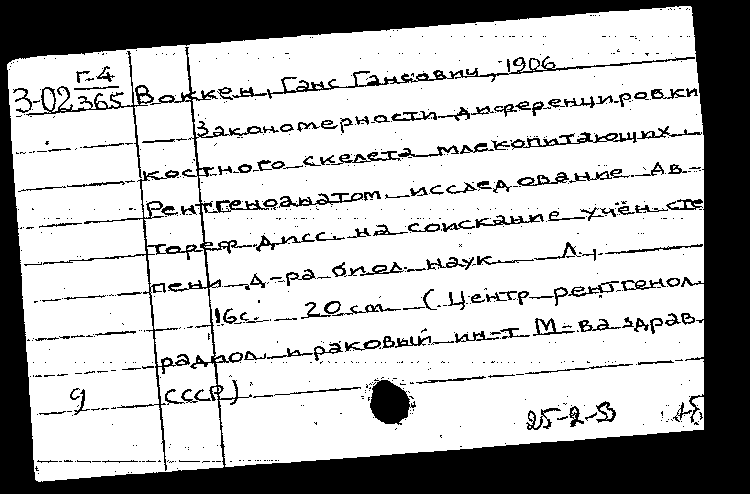 Г-4
3-02 365 Воккен, Ганс Гансович, 1906
Закономерности диференцировки
костного скелета млекопитающих.
Рентгеноанатом. исследование Ав-
тореф дисс. на соискание учён. сте
пени д-ра биол. наук Л.,
16с. 20 см. (Центр рентгенол.
радиол. и раковый ин-т М-ва здрав.
СССР)
g
25-2-53